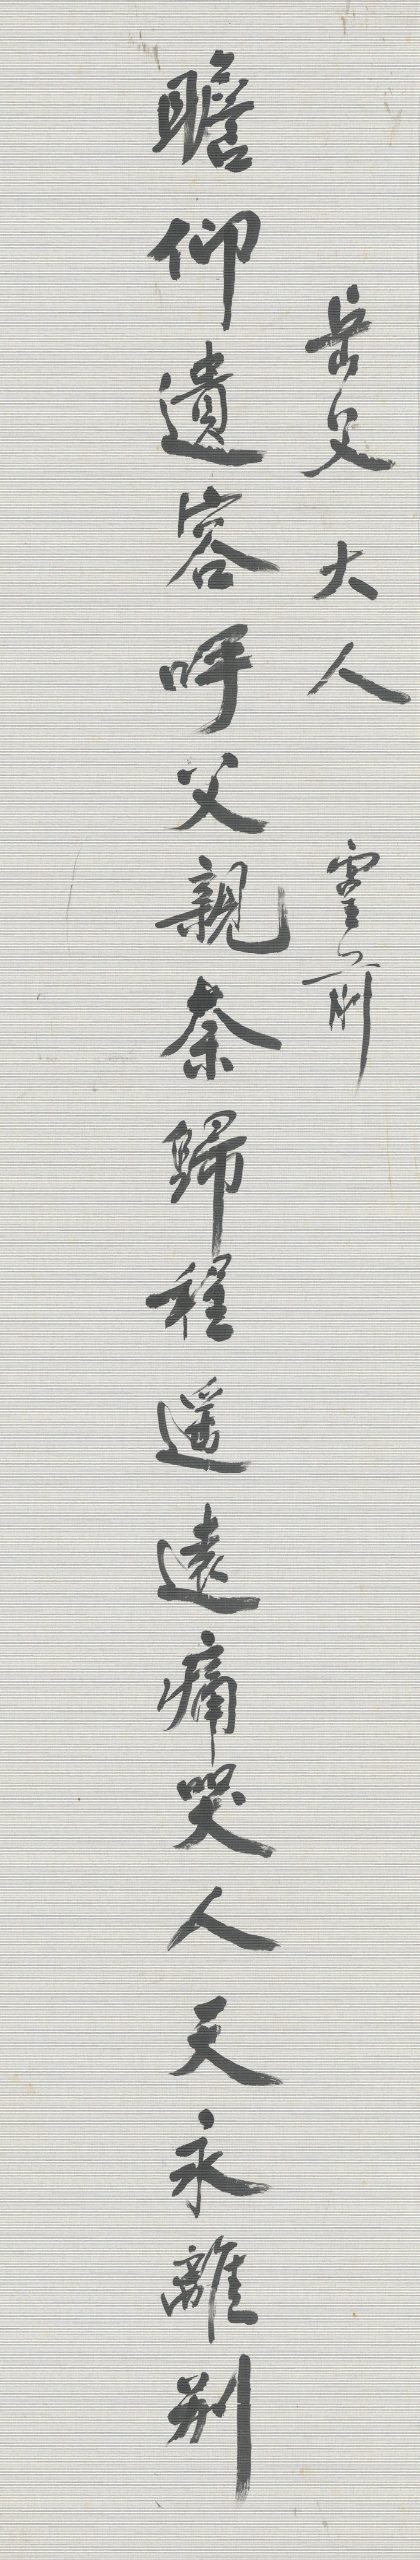 岳父大人 靈前
瞻仰遺容呼父親奈歸程遥遠痛哭人天永離別